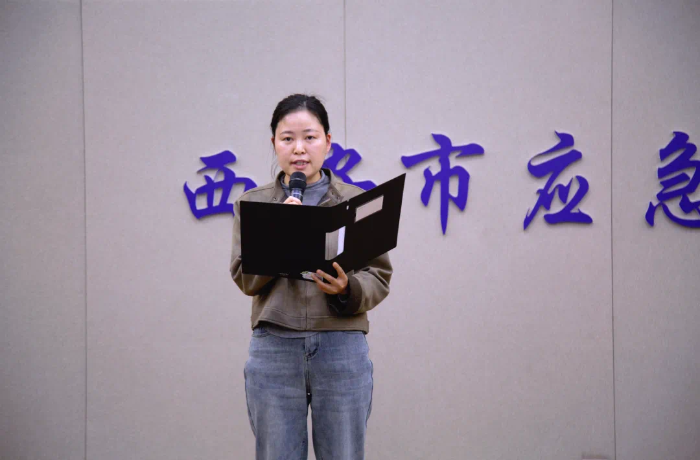 西市应急